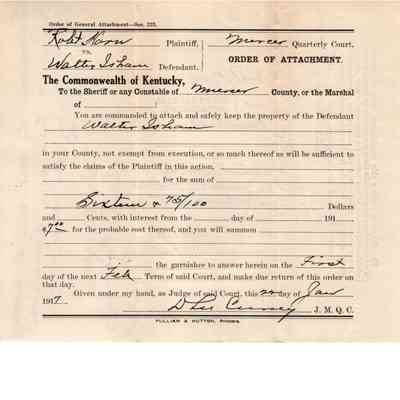 Order of General Attachment—Sec. 237.
Robt Horn Plaintiff, Mercer Quarterly Court,
vs.
Walter Isham Defendant. ORDER OF ATTACHMENT.
The Commonwealth of Kentucky,
To the Sheriff or any Constable of Mercer County, or the Marshal
of :
You are commanded to attach and safely keep the property of the Defendant
Walter Isham
in your County, not exempt from execution, or so much thereof as will be sufficient to
satisfy the claims of the Plaintiff in this action,
for the sum of
Sixteen & 75/100 Dollars
and Cents, with interest from the day of 191
$7.00 for the probable cost thereof, and you will summon
the garnishee to answer herein on the First
day of the next Feb Term of said Court, and make due return of this order on
that day.
Given under my hand, as Judge of said Court, this 22 day of Jan
1917. D Lee J. M. Q. C.
PULLIAM & HUTTON, PRINTERS.